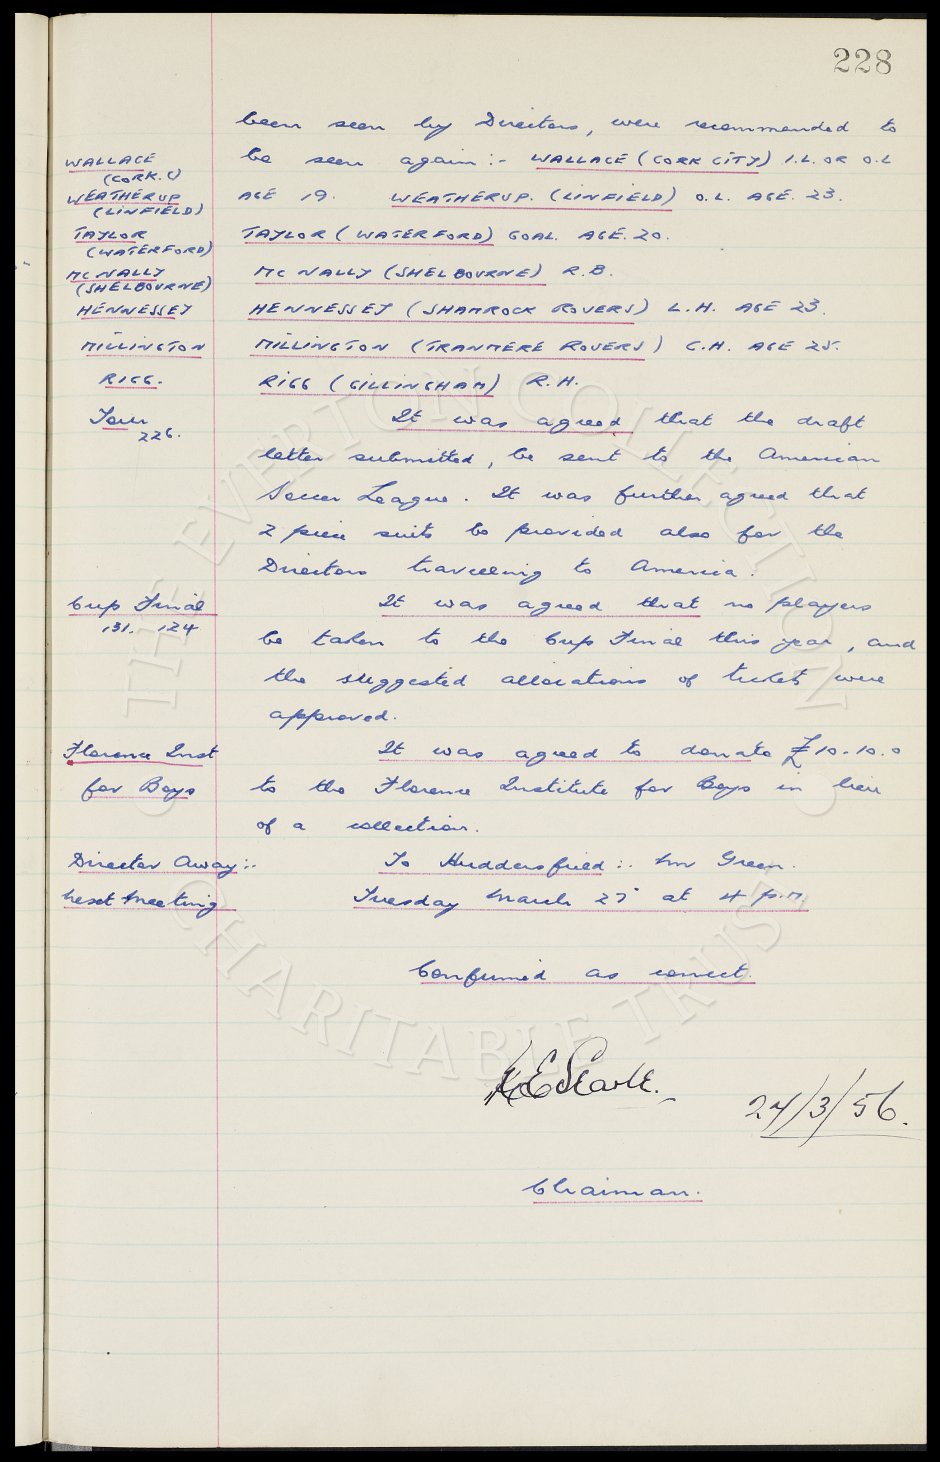 228
been seen by Directors, were recommended to
WALLACE
be seen again :- WALLACE (CORK CITY) I.L. OR O.L
(CORK. C)
WEATHERUP
AGE 19. WEATHERUP. (LINFIELD) O.L. AGE. 23.
(LINFIELD)
TAYLOR
TAYLOR (WATERFORD) GOAL. AGE. 20.
(WATERFORD)
McNALLY
McNALLY (SHELBOURNE) R.B.
(SHELBOURNE)
HENNESSEY
HENNESSEY (SHAMROCK ROVERS) L.H. AGE 23.
MILLINGTON
MILLINGTON (TRANMERE ROVERS) C.H. AGE 25.
RIGG.
RIGG (GILLINGHAM) R.H.
Tour
It was agreed that the draft
226.
letter submitted, be sent to the American
Soccer League. It was further agreed that
2 piece suits be provided also for the
Directors travelling to America.
Cup Final
It was agreed that no players
131. 124
be taken to the Cup Final this year, and
the suggested allocations of tickets were
approved.
Florence Inst
It was agreed to donate £10-10.0
for Boys
to the Florence Institute for Boys in lieu
of a collection.
Director Away :-
To Huddersfield :. Mr Green.
Next Meeting
Tuesday March 27 at 4 p.m.
Confirmed as correct.
24/3/56.
Chairman.
THE EVERTON COLLECTION
CHARITABLE TRUST